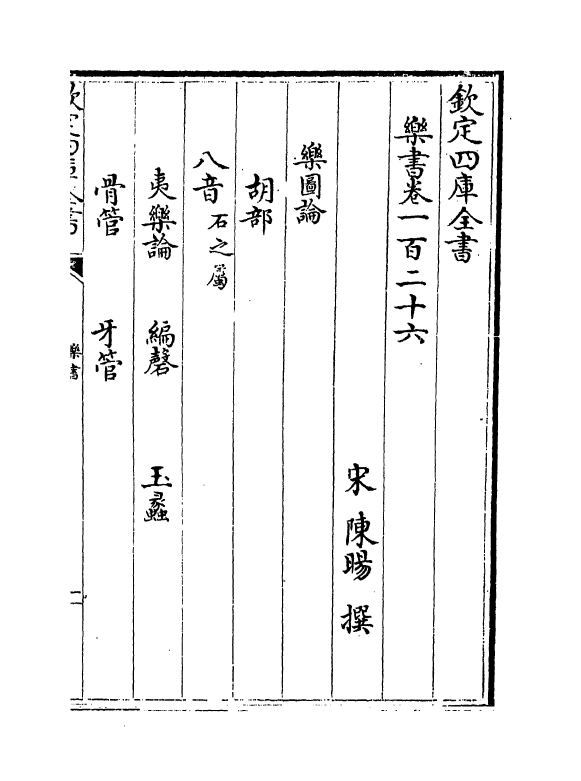 欽定四庫全書
樂書卷一百二十六
宋 陳暘 撰
樂圖論
胡部
八音石之屬
夷樂論 編磬 玉蠡
骨管 牙管
樂書
一